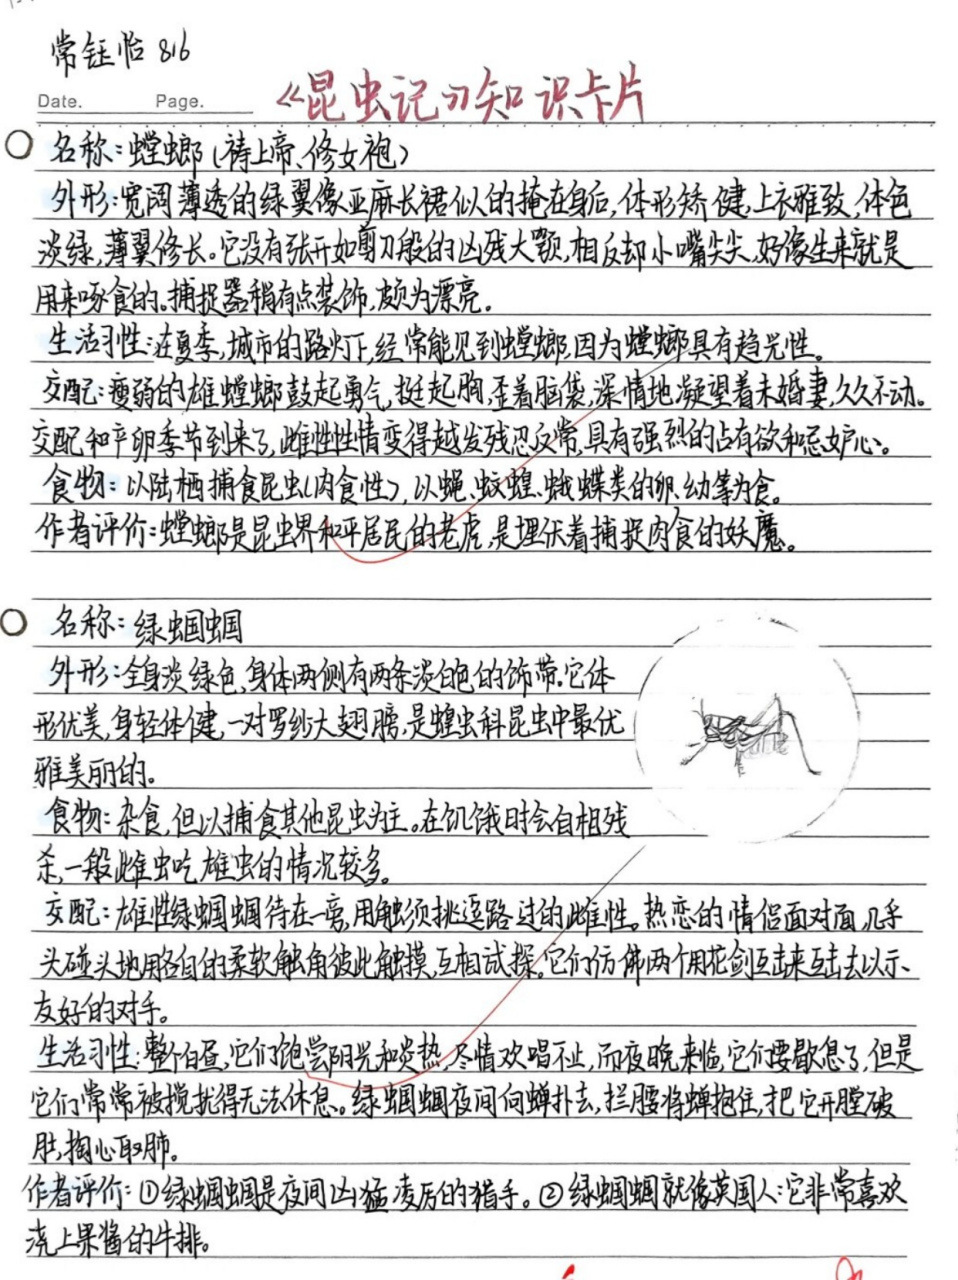 常钰怡 816
Date. Page.
《昆虫记》知识卡片
名称：螳螂（祷上帝、修女袍）
外形：宽阔薄透的绿翼像亚麻长裙似的掩在身后，体形矫健，上衣雅致，体色
淡绿，薄翼修长。它没有张开如剪刀般的凶残大颚，相反却小嘴尖尖，好像生来就是
用来啄食的。捕捉器稍有点装饰，颇为漂亮。
生活习性：在夏季，城市的路灯下，经常能见到螳螂，因为螳螂具有趋光性。
交配：瘦弱的雄螳螂鼓起勇气，挺起胸，歪着脑袋，深情地凝望着未婚妻，久久不动。
交配和产卵季节到来了，雌性性情变得越发残忍反常，具有强烈的占有欲和忌妒心。
食物：以陆栖捕食昆虫（肉食性），以蝇、蚊蝗、蛾蝶类的卵、幼等为食。
作者评价：螳螂是昆虫界和平居民的老虎，是埋伏着捕捉肉食的妖魔。
名称：绿蝈蝈
外形：全身淡绿色，身体两侧有两条淡白色的饰带。它体
形优美，身轻体健，一对罗纱大翅膀，是蝗虫科昆虫中最优
雅美丽的。
食物：杂食，但以捕食其他昆虫为主。在饥饿时会自相残
杀，一般雌虫吃雄虫的情况较多。
交配：雄性绿蝈蝈待在一旁，用触须挑逗路过的雌性。热恋的情侣面对面，几乎
头碰头地用各自的柔软触角彼此触摸，互相试探。它们仿佛两个用花剑互击来互击去以示
友好的对手。
生活习性：整个白昼，它们饱尝阳光和炎热，尽情欢唱不止，而夜晚来临，它们要歇息了，但是
它们常常被搅扰得无法休息。绿蝈蝈夜间向蝉扑去，拦腰将蝉抱住，把它开膛破
肚，掏心取肺。
作者评价：①绿蝈蝈是夜间凶猛凌厉的猎手。②绿蝈蝈就像英国人：它非常喜欢
浇上果酱的牛排。